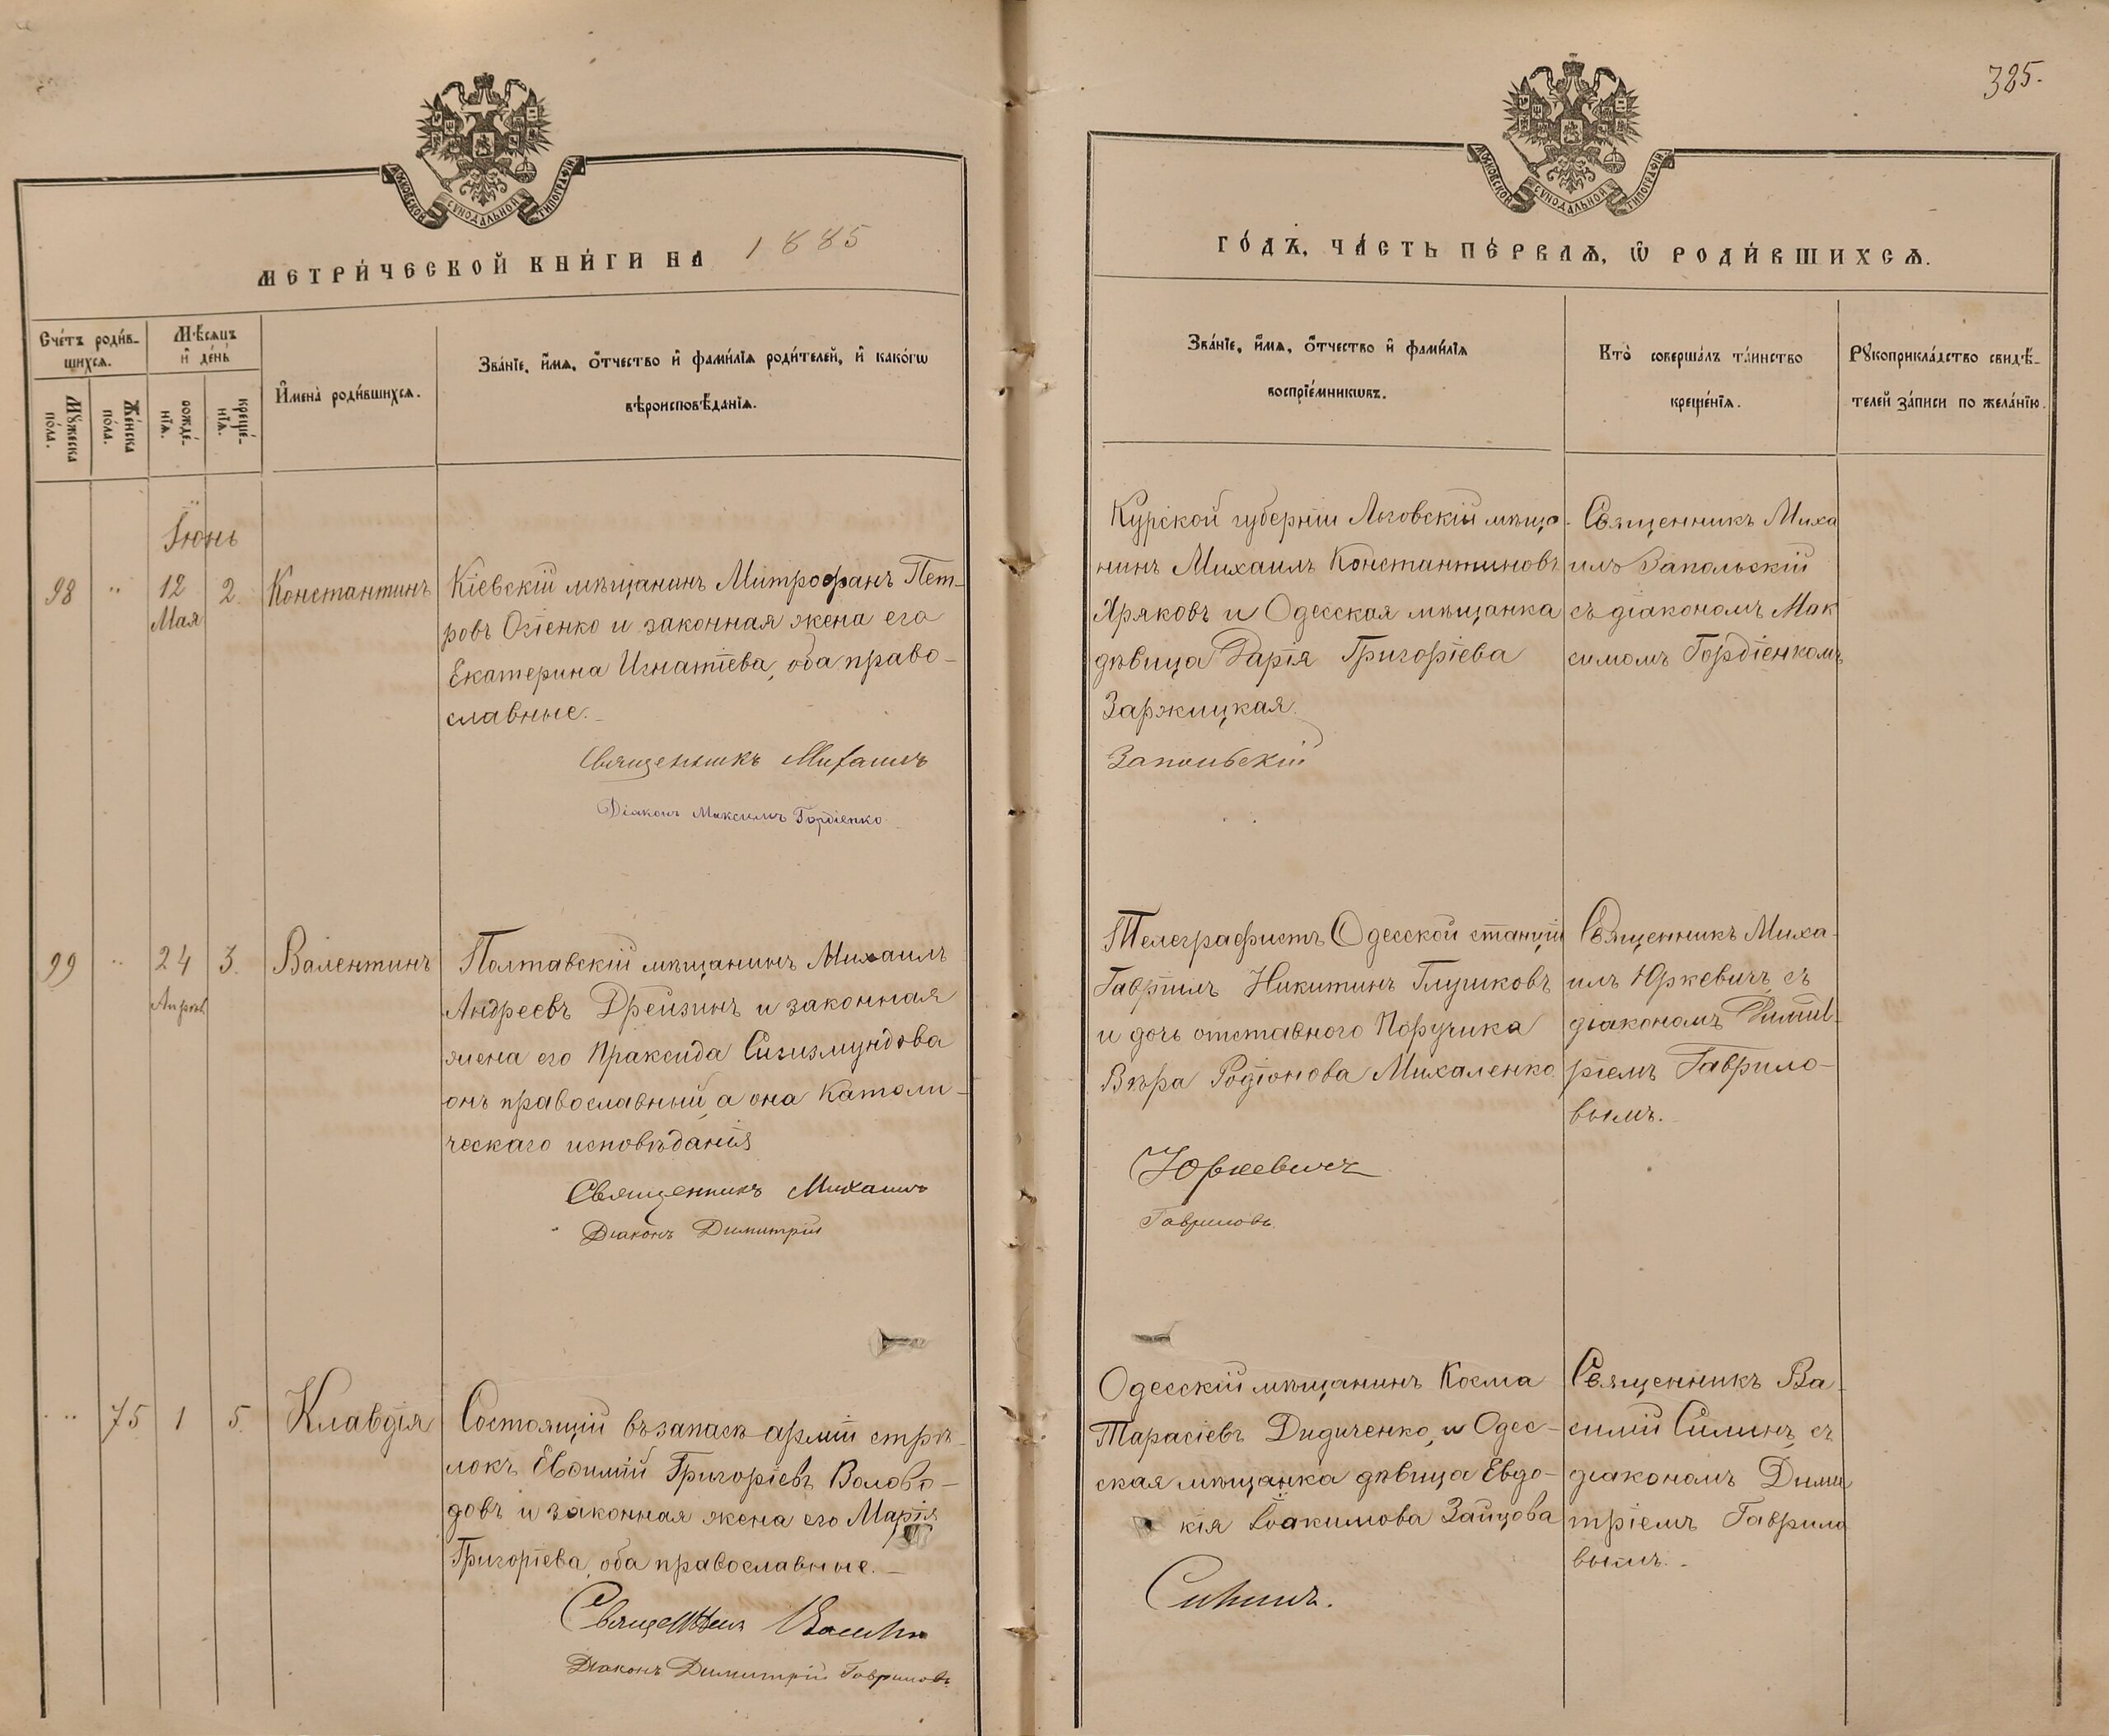 385.
МОСКОВСКОЙ СѴНОДАЛЬНОЙ ТИПОГРАФІИ
МОСКОВСКОЙ СѴНОДАЛЬНОЙ ТИПОГРАФІИ
МЕТРИ́ЧЕСКОЙ КНИ́ГИ НА 1885
ГО́ДЪ, ЧА́СТЬ ПЕ́РВАѦ, Ѡ҆ РОДИ́ВШИХСѦ.
Сче́тъ роди́в-
шихсѧ.
Мꙋжеска
по́ла.
Же́нска
по́ла.
Мѣ́сѧцъ
и҆ де́нь
рожде́-
нїѧ.
креще́-
нїѧ.
И҆мена̀ роди́вшихсѧ.
Зва́нїе, и҆́мѧ, ѻ҆́тчество и҆ фами́лїѧ роди́телей, и҆ како́гѡ
вѣроисповѣ́данїѧ.
Зва́нїе, и҆́мѧ, ѻ҆́тчество и҆ фами́лїѧ
воспрїе́мникѡвъ.
Кто̀ соверша́лъ та́инство
креще́нїѧ.
Рꙋкоприкла́дство свидѣ́-
телей за́писи по жела́нїю.
Іюнь
98 " 12 2. Константинъ
Мая
Кіевскій мѣщанинъ Митрофанъ Пет-
ровъ Огіенко и законная жена его
Екатерина Игнатіева, оба право-
славные.
Священникъ Михаилъ
Діаконъ Максимъ Гордіенко
Курской губерніи Льговскій мѣща-
нинъ Михаилъ Константиновъ
Хряковъ и Одесская мѣщанка
дѣвица Дарія Григоріева
Заржицкая.
Запольскій
Священникъ Миха
илъ Запольскій
съ діакономъ Мак
симомъ Гордіенкомъ
99 " 24 3. Валентинъ
Апрѣл
Полтавскій мѣщанинъ Михаилъ
Андреевъ Дрейзинъ и законная
жена его Праксида Сигизмундова
онъ православный, а она Католи-
ческаго исповѣданія
Священникъ Михаилъ
Діаконъ Димитрій
Телеграфистъ Одесской станціи
Гавріилъ Никитинъ Глушковъ
и дочь отставного Поручика
Вѣра Родіонова Михаленко
Юркевичъ
Гавриловъ
Священникъ Миха-
илъ Юркевичъ съ
діакономъ Димит-
ріемъ Гаврило-
вымъ.
" 75 1 5. Клавдія
Состоящій въ запасѣ арміи стрѣ-
локъ Евфимій Григоріевъ Волово-
довъ и законная жена его Марія
Григоріева, оба православные.
Священникъ Василій
Діаконъ Димитрій Гавриловъ
Одесскій мѣщанинъ Косма
Тарасіевъ Дидиченко, и Одес-
ская мѣщанка дѣвица Евдо-
кія Іоакимова Зайцова
Силинъ.
Священникъ Ва-
силій Силинъ, съ
діакономъ Дими
тріемъ Гаврило
вымъ.